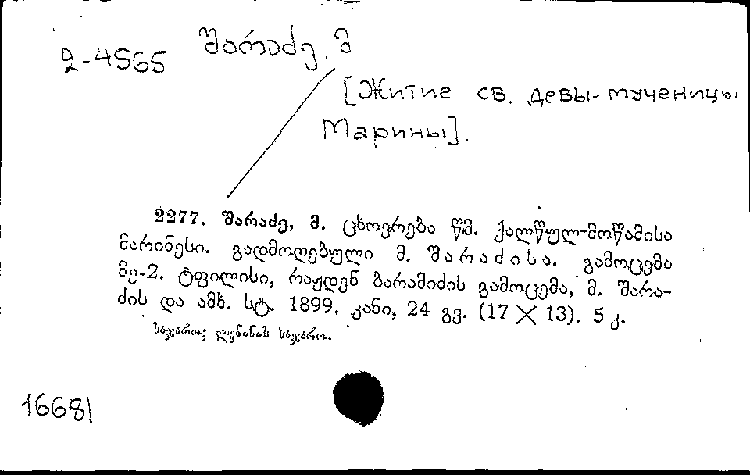 2-4565 შარაძე, მ
[Житие св. девы-мученицы
Марины].
2277. შარაძე, მ. ცხოვრება წმ. ქალწულ-მოწამისა
მარინესი. გადმოღებული მ. შარაძისა. გამოცემა
მე-2. ტფილისი, რაჟდენ ბარამიძის გამოცემა, მ. შარა-
ძის და ამხ. სტ. 1899. კანი, 24 გვ. (17 × 13). 5 კ.
16681